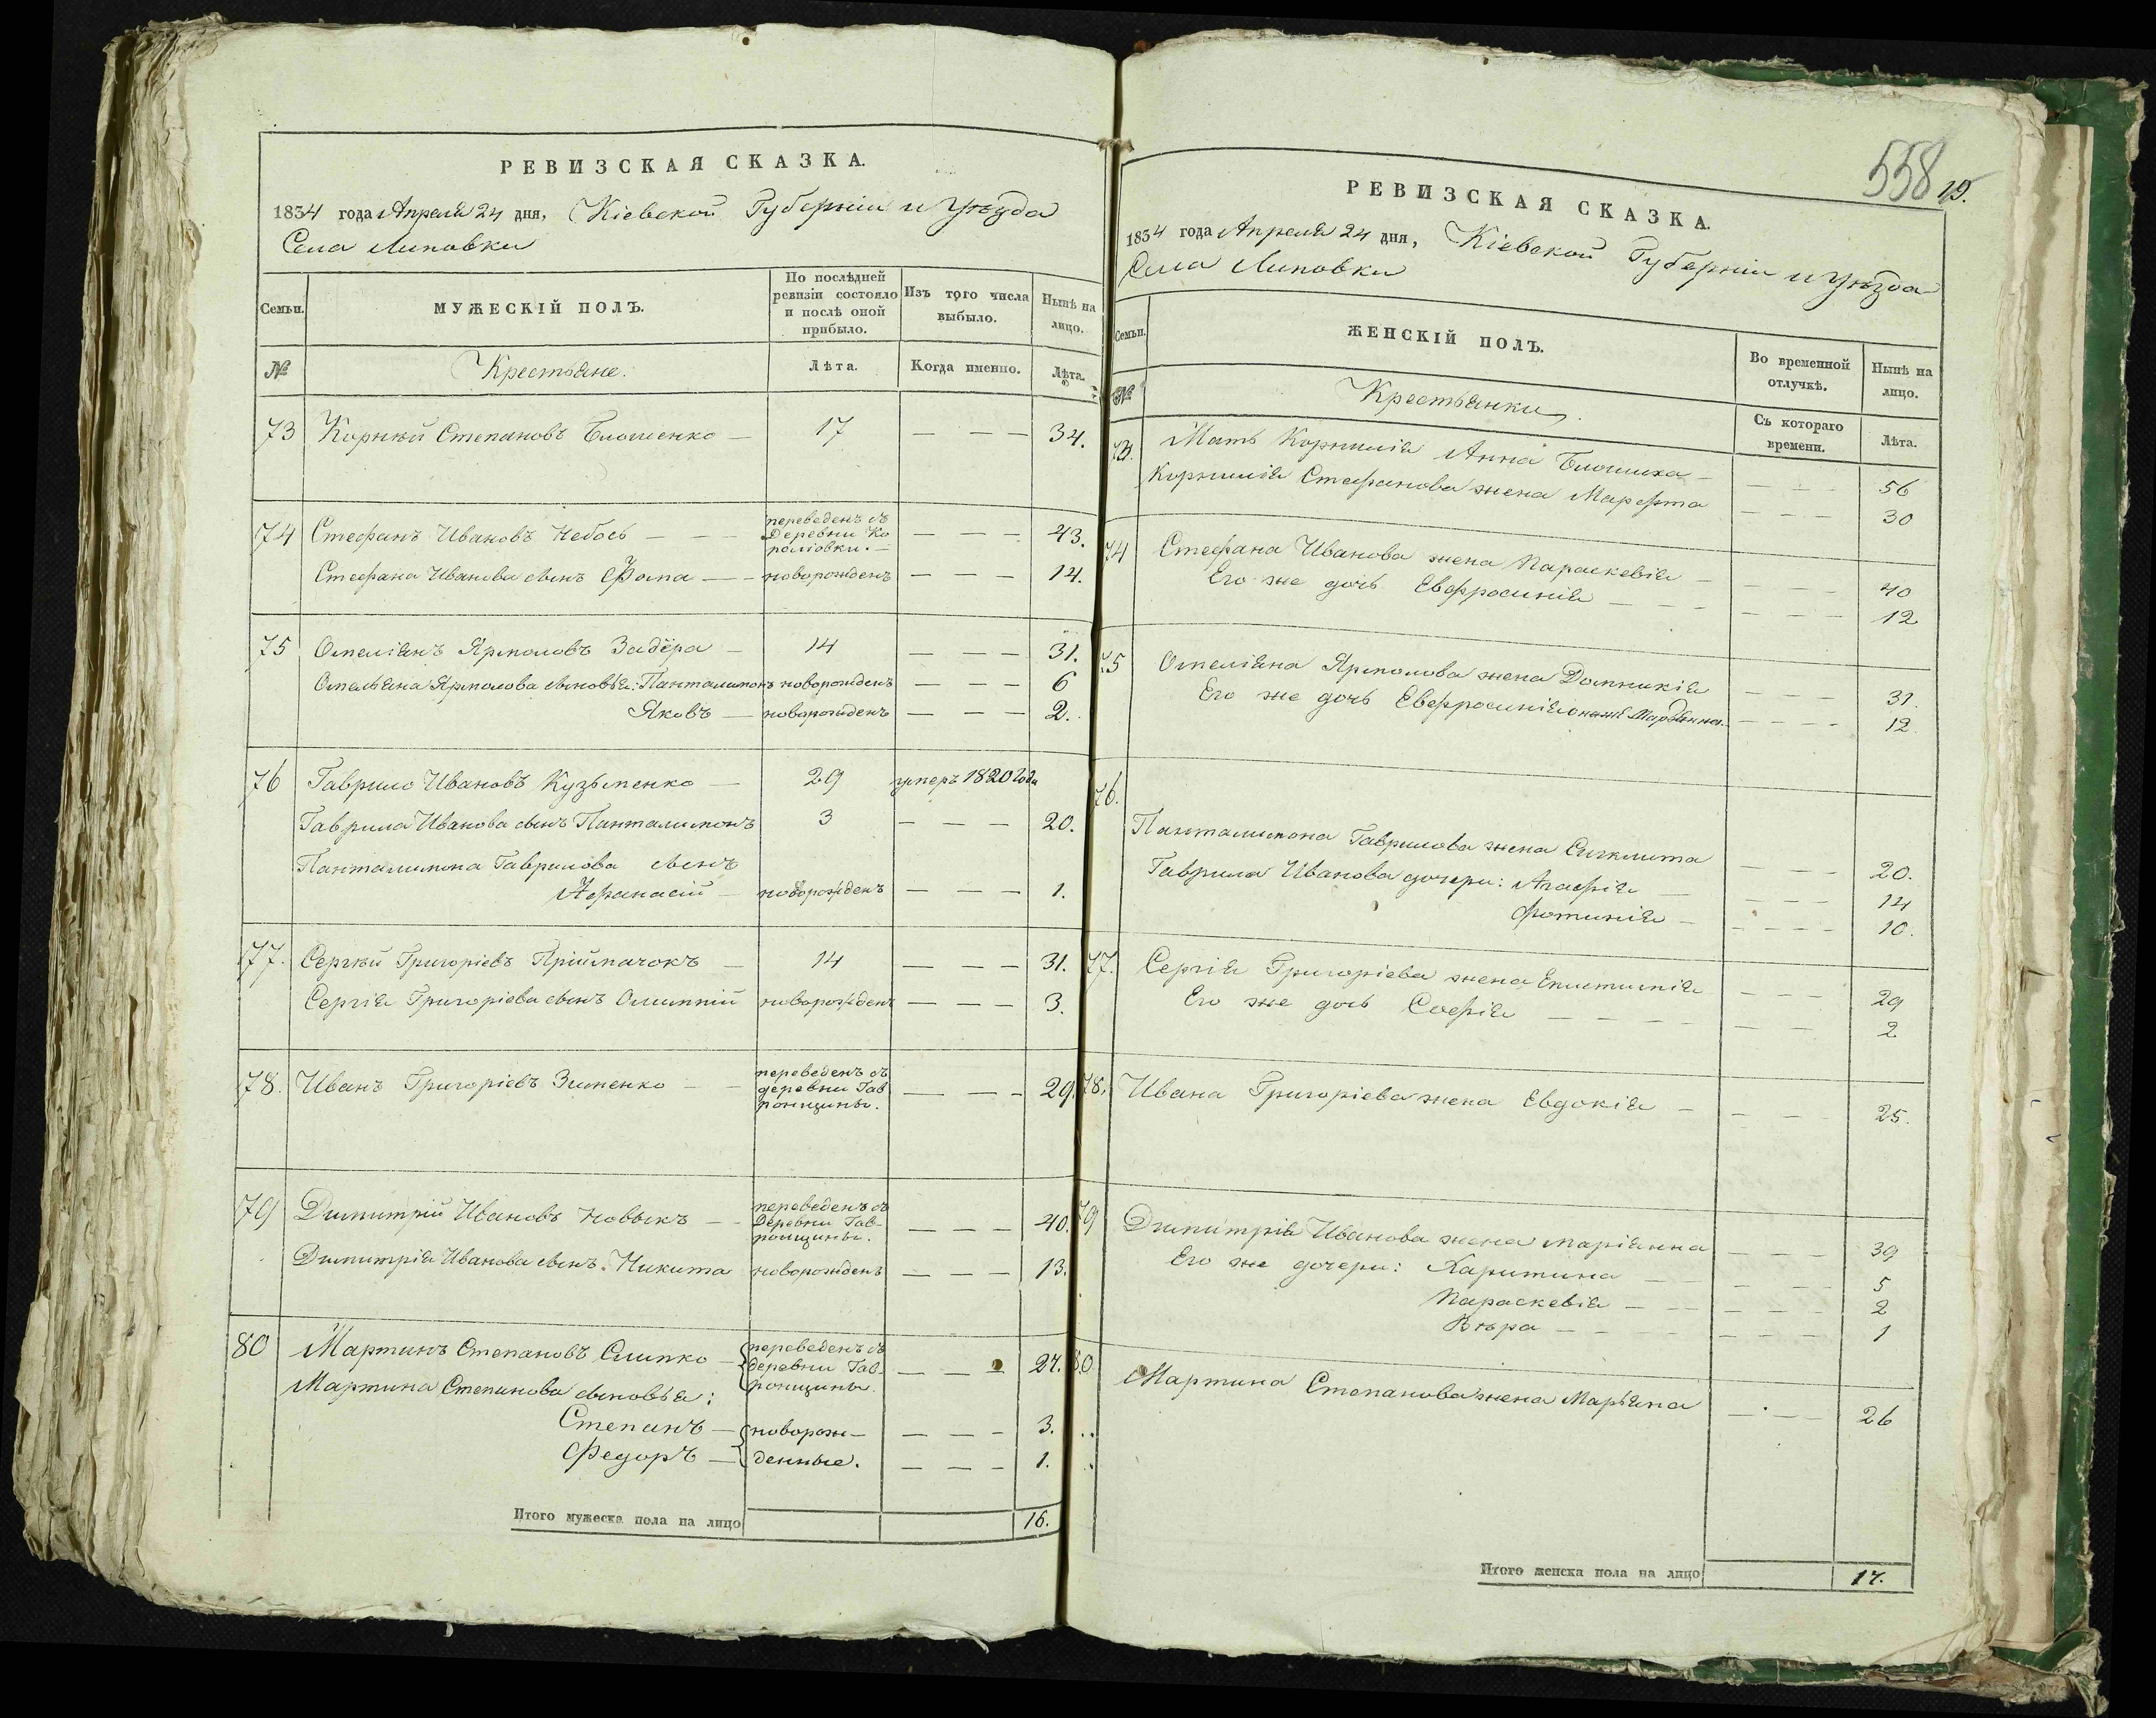 РЕВИЗСКАЯ СКАЗКА.
1834 года Апреля 24 дня, Кіевской Губерніи и Уѣзда
Села Липовки
Семьи.
МУЖЕСКІЙ ПОЛЪ.
По послѣдней
ревизіи состояло
и послѣ оной
прибыло.
Изъ того числа
выбыло.
Нынѣ на
лицо.
№
Крестьяне.
Лѣта.
Когда именно.
Лѣта.
73 Корнѣй Степановъ Блошенко — 17 — — — 34.
74 Стефанъ Ивановъ Небось — — переведенъ съ
Деревни Ко
роліовки. — — — — 43.
Стефана Иванова сынъ Фома — — новорожденъ — — — 14.
75 Омеліянъ Ярмоловъ Задёра — 14 — — — 31.
Омельяна Ярмолова сыновья: Панталимонъ новорожденъ — — — 6
Яковъ — новорожденъ — — — 2.
76 Гаврило Ивановъ Кузьменко — 29 умеръ 1820 года
Гаврила Иванова сынъ Панталимонъ 3 — — — 20.
Панталимона Гаврилова сынъ
Афанасій — новорожденъ — — — 1.
77. Сергѣй Григоріевъ Пріймачокъ — 14 — — — 31.
Сергія Григоріева сынъ Олимпій новорожденъ — — — 3.
78. Иванъ Григоріевъ Зименко — — переведенъ съ
деревни Гав
ронщины. — — — 29.
79 Димитрій Ивановъ Новыкъ — — переведенъ съ
Деревни Гав-
ронщины. — — — 40.
Димитрія Иванова сынъ. Никита новорожденъ — — — 13.
80 Мартинъ Степановъ Слипко — переведенъ съ
деревни Гав-
ронщины. — — — 27.
Мартина Степанова сыновья:
Степанъ — новорож- — — — 3.
Федоръ — денные. — — — 1.
Итого мужеска пола на лицо 16.
558 15.
РЕВИЗСКАЯ СКАЗКА.
1834 года Апреля 24 дня, Кіевской Губерніи и Уѣзда
Села Липовки
Семьи.
ЖЕНСКІЙ ПОЛЪ.
Во временной
отлучкѣ.
Нынѣ на
лицо.
№
Крестьянки.
Съ котораго
времени.
Лѣта.
73. Мать Корнилія Анна Блошиха — — — — 56
Корнилія Стефанова жена Марфта — — — 30
74 Стефана Иванова жена Параскевія — — — — 40
Его же дочь Евфросинія — — — — — — 12
75 Омеліяна Ярмолова жена Домникія — — — 31.
Его же дочь Евфросинія Марьянна. — — — — 12.
76. Панталимона Гаврилова жена Сиклита — — — 20.
Гаврила Иванова дочери: Агафія — — — — 14
Фотинія — — — — — 10.
77. Сергія Григоріева жена Епистимія — — — 29
Его же дочь Софія — — — — — — — 2
78. Ивана Григоріева жена Евдокія — — — — 25.
79 Димитрія Иванова жена Маріянна — — — 39
Его же дочери: Харитина — — — — 5
Параскевія — — — — — 2
Вѣра — — — — — — — 1
80 Мартина Степанова жена Марьяна — — — 26
Итого женска пола на лицо 17.